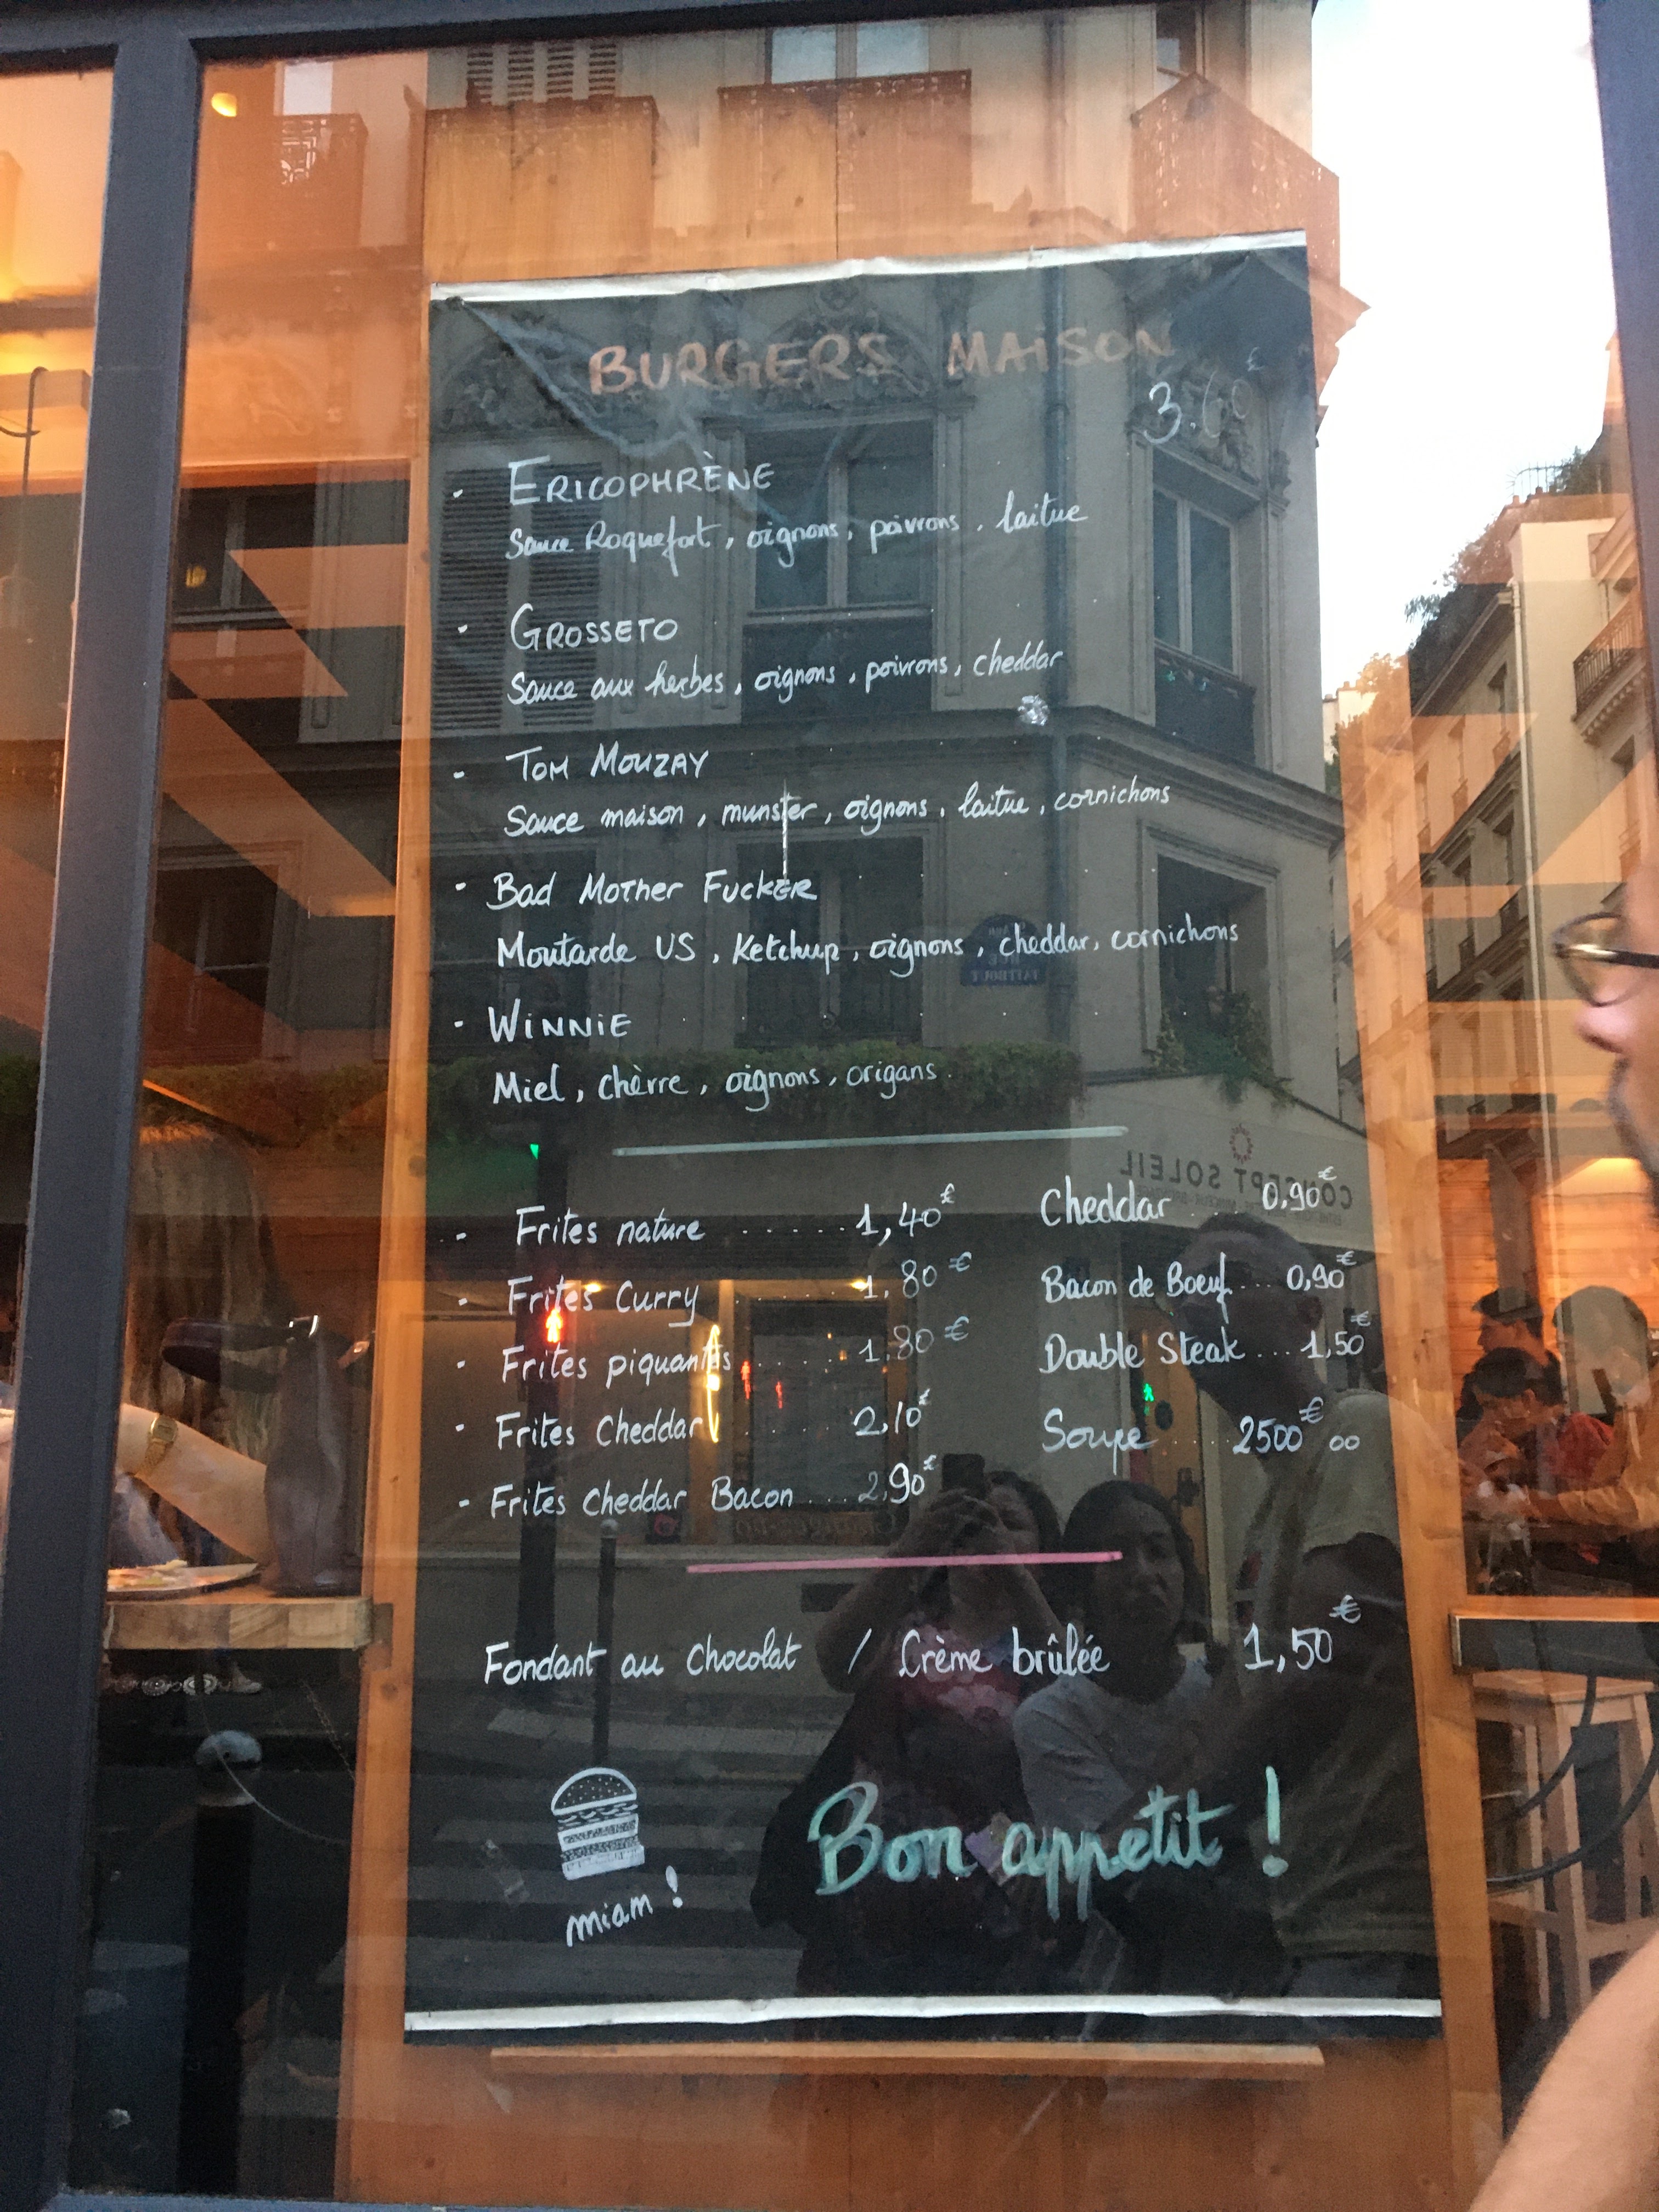 BURGERS MAISON
3.60€
- ERICOPHRÈNE
Sauce Roquefort, oignons, poivrons, laitue
- GROSSETO
Sauce aux herbes, oignons, poivrons, cheddar
- TOM MOUZAY
Sauce maison, munster, oignons, laitue, cornichons
- Bad Mother Fucker
Moutarde US, Ketchup, oignons, cheddar, cornichons
- WiNNiE
Miel, chèvre, oignons, origans.
- Frites nature ...... 1,40€
- Frites Curry ...... 1,80€
- Frites piquantes ...... 1,80€
- Frites Cheddar ..... 2,10€
- Frites Cheddar Bacon .... 2,90€
Cheddar ..... 0,90€
Bacon de Boeuf .... 0,90€
Double Steak .... 1,50€
Soupe .... 2500€ 00
Fondant au Chocolat / Crème brûlée 1,50€
miam !
Bon appétit !
CONCEPT SOLEIL
RUE
TAITBOUT